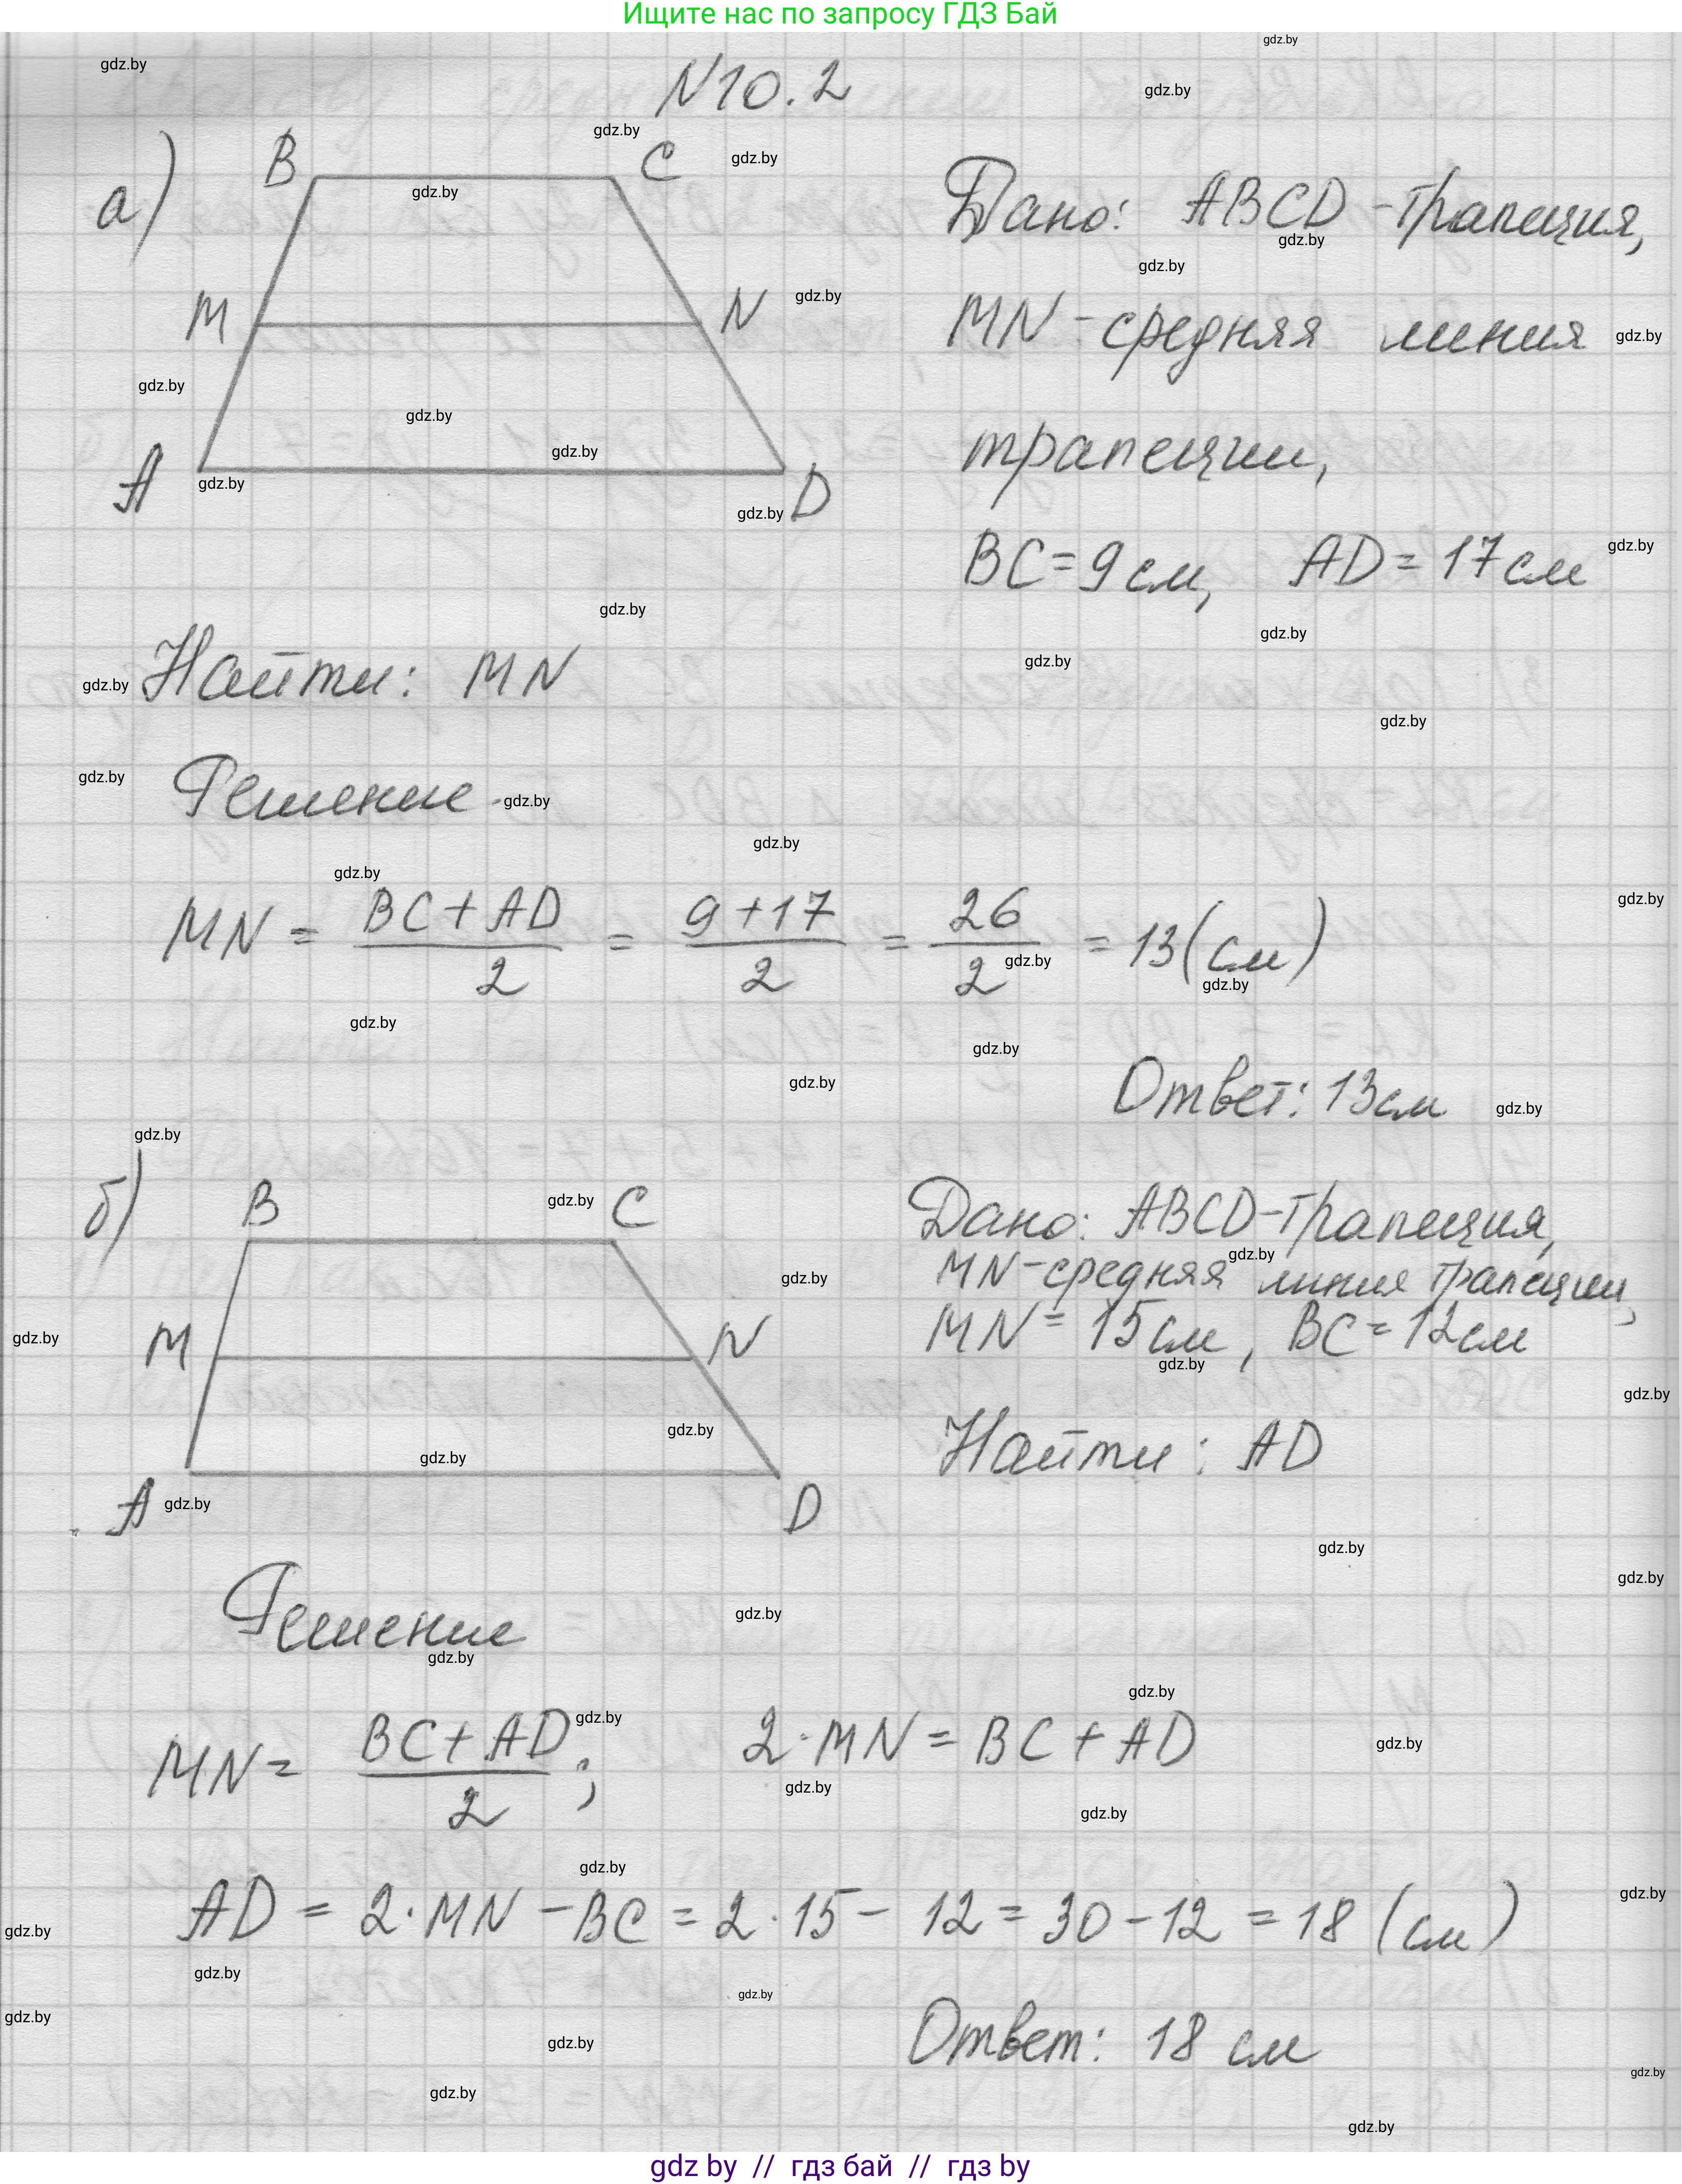 Ищите нас по запросу ГДЗ Бай
N10.2
а)
B C
M N
A D
Дано: ABCD - трапеция,
MN - средняя линия
трапеции,
BC = 9 см, AD = 17 см
Найти: MN
Решение.
MN = (BC + AD)/2 = (9 + 17)/2 = 26/2 = 13 (см)
Ответ: 13 см
б)
B C
M N
A D
Дано: ABCD - трапеция,
MN - средняя линия трапеции,
MN = 15 см, BC = 12 см
Найти: AD
Решение
MN = (BC + AD)/2; 2·MN = BC + AD
AD = 2·MN - BC = 2·15 - 12 = 30 - 12 = 18 (см)
Ответ: 18 см
gdz by // гдз бай // гдз by